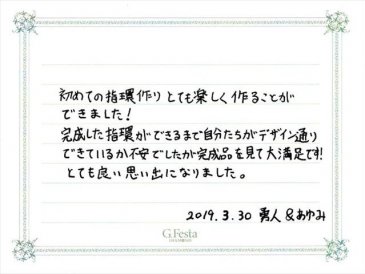 初めての指環作りとても楽しく作ることが
できました!
完成した指環ができるまで自分たちがデザイン通り
できているか不安でしたが完成品を見て大満足です!
とても良い思い出になりました。
2019.3.30 勇人&あゆみ
G.Festa